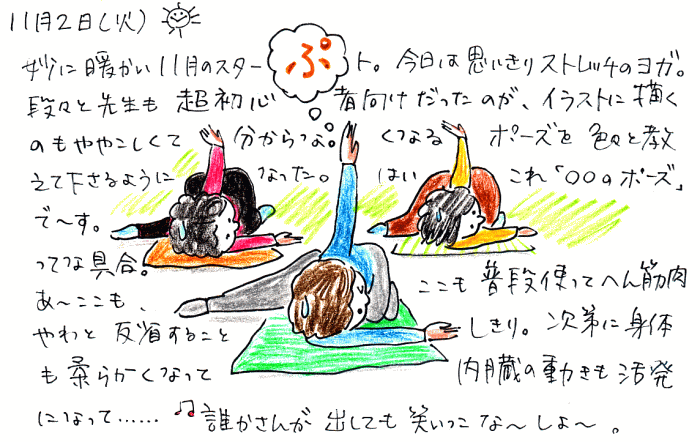 11月2日(火)
妙に暖かい11月のスタート。今日は思いきりストレッチのヨガ。
ぷ
段々と先生も超初心者向けだったのが、イラストに描く
のもややこしくて分からなくなるポーズを色々と教
えて下さるようになった。はいこれ「〇〇のポーズ」
で〜す。
ってな具合。
あ〜ここも、ここも普段使ってへん筋肉
やわと反省することしきり。次第に身体
も柔らかくなって内臓の動きも活発
になって……♫誰かさんが出しても笑いっこな〜しよ〜。